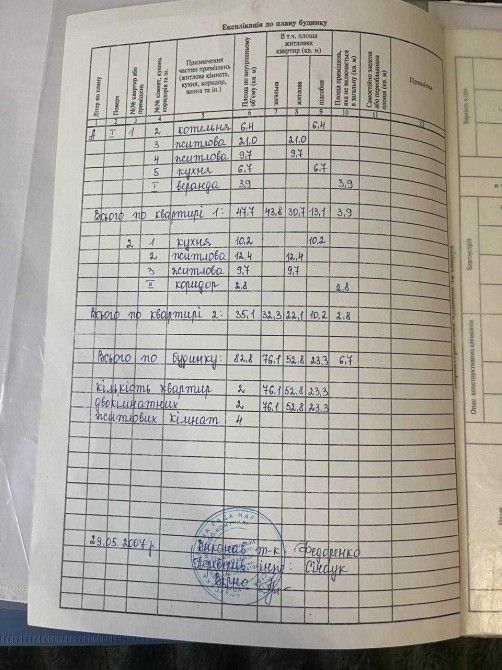 Експлікація до плану будинку
Літер по плану
Поверх
№№ квартир або приміщень
№№ кімнат, кухонь коридорів та ін.
Призначення частин приміщень (житлова кімната, кухня, коридор, ванна та ін.)
Площа по внутрішньому об'єму (кв. м)
В т.ч. площа житлових квартир (кв. м)
загальна
житлова
підсобна
Площа приміщень, яка не включається в загальну (кв. м)
Самостійно зведена або переобладнана площа (кв. м)
Примітка
1 2 3 4 5 6 7 8 9 10 11 12
I 1 2 котельня 6,4 6,4
3 житлова 21.0 21.0
4 житлова 9,7 9,7
5 кухня 6.7 6.7
I веранда 3,9 3,9
Всього по квартирі 1: 47.7 43,8 30,7 13,1 3,9
2 1 кухня 10,2 10,2
2 житлова 12,4 12,4
3 житлова 9,7 9,7
II коридор 2,8 2,8
Всього по квартирі 2: 35,1 32,3 22,1 10,2 2,8
Всього по будинку: 82,8 76,1 52,8 23,3 6,7
кількість квартир 2 76,1 52,8 23,3
двокімнатних 2 76,1 52,8 23.3
житлових кімнат 4
29.05.2007р.
Виконав т-к Федоренко
інв: Сінчук
Вірно